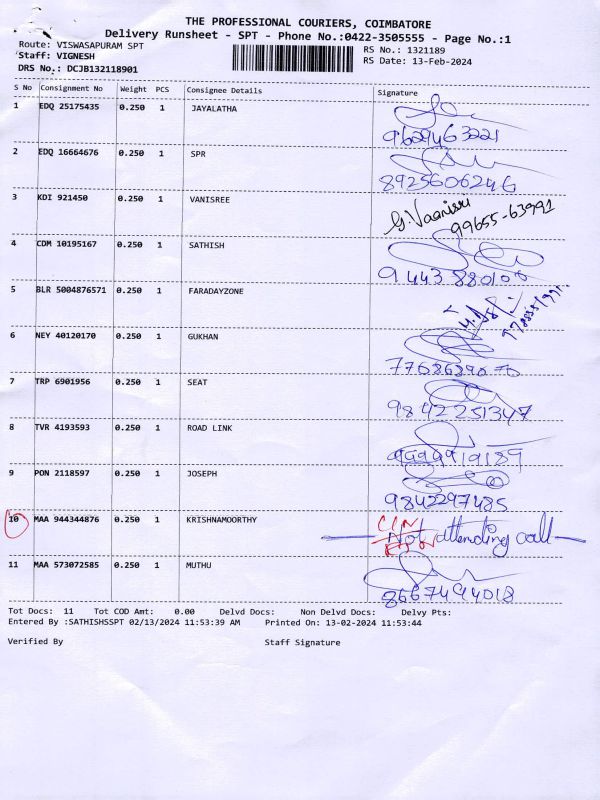 THE PROFESSIONAL COURIERS, COIMBATORE
Delivery Runsheet - SPT - Phone No.:0422-3505555 - Page No.:1
Route: VISWASAPURAM SPT RS No.: 1321189
Staff: VIGNESH RS Date: 13-Feb-2024
DRS No.: DCJB132118901
S No Consignment No Weight PCS Consignee Details Signature
1 EDQ 25175435 0.250 1 JAYALATHA
9629463221
2 EDQ 16664676 0.250 1 SPR
8925606246
3 KDI 921450 0.250 1 VANISREE G. Vaanisri
99655-63991
4 CDM 10195167 0.250 1 SATHISH
5 BLR 5004876571 0.250 1 FARADAYZONE
6 NEY 40120170 0.250 1 GUKHAN
7 TRP 6901956 0.250 1 SEAT
9842251347
8 TVR 4193593 0.250 1 ROAD LINK
9 PON 2118597 0.250 1 JOSEPH
9842297485
10 MAA 944344876 0.250 1 KRISHNAMOORTHY Not attending call
11 MAA 573072585 0.250 1 MUTHU
8667494018
Tot Docs: 11 Tot COD Amt: 0.00 Delvd Docs: Non Delvd Docs: Delvy Pts:
Entered By :SATHISHSSPT 02/13/2024 11:53:39 AM Printed On: 13-02-2024 11:53:44
Verified By Staff Signature